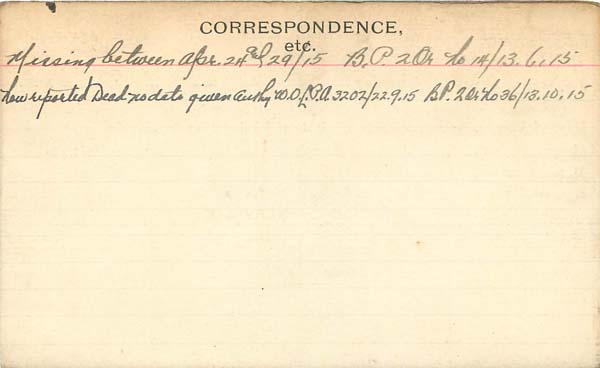 CORRESPONDENCE,
etc.
Missing between Apr. 24 & 29/15 B.P. 2 Or No 14/13.6.15
Now reported Dead - no date given Authy W.O.L. P.A. 3202/22.9.15 B.P. 2 Or No 36/13.10.15